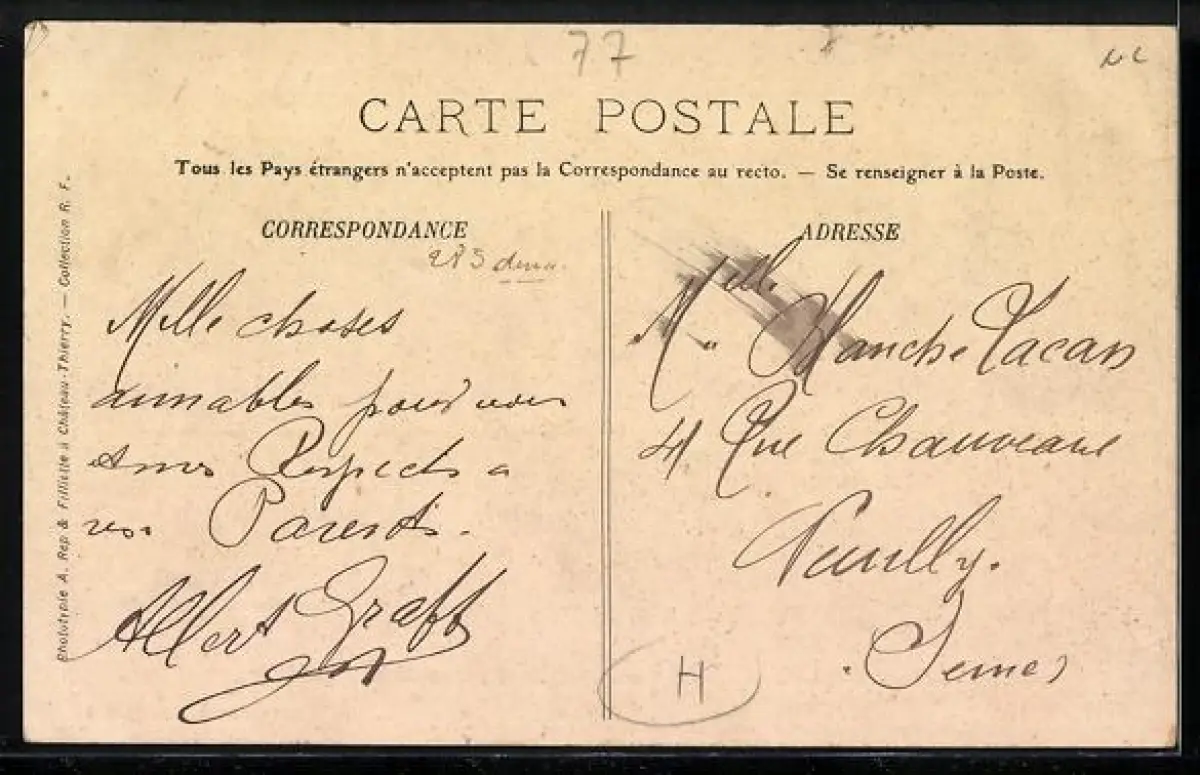 77
CARTE POSTALE
Tous les Pays étrangers n'acceptent pas la Correspondance au recto. — Se renseigner à la Poste.
CORRESPONDANCE
Mille choses
aimables pour vous
Respects a
vos Parents.
Albert Graff
ADRESSE
Melle Blanche Lacan
41 Rue Chauveau
Neuilly.
Seine
H
Phototypie A. Rep. & Filliette à Château-Thierry. — Collection R. F.